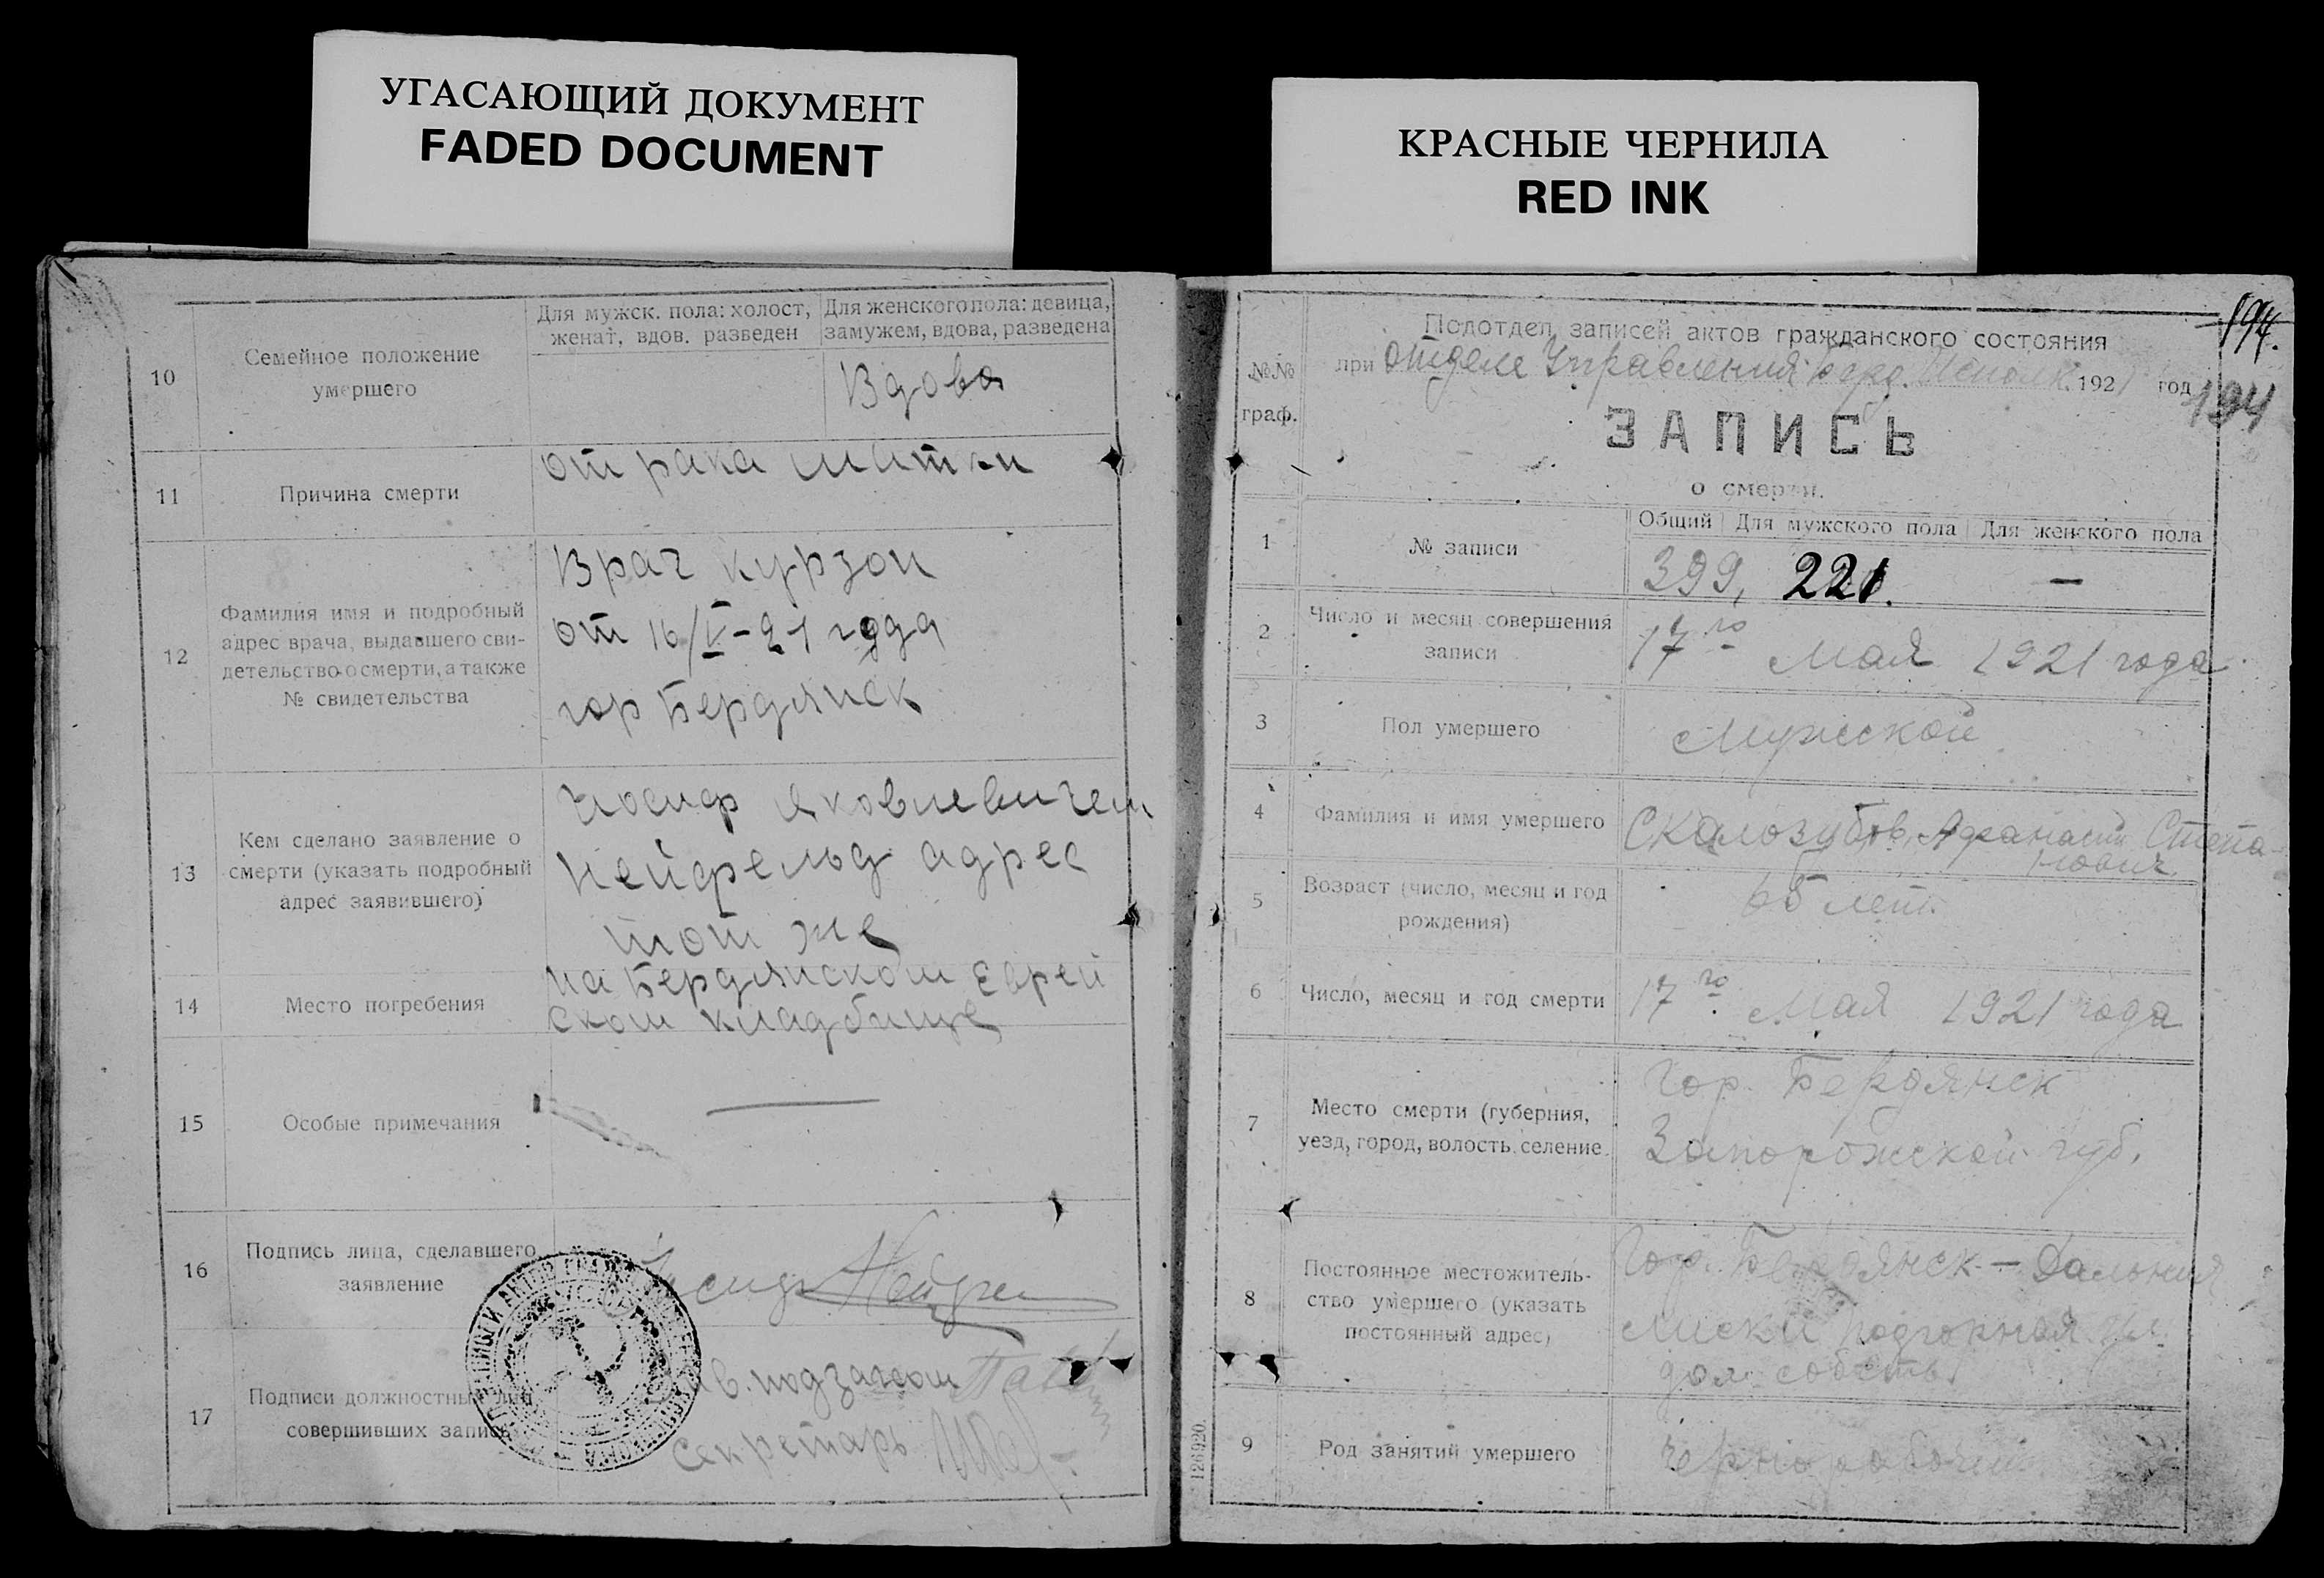 УГАСАЮЩИЙ ДОКУМЕНТ
FADED DOCUMENT
КРАСНЫЕ ЧЕРНИЛА
RED INK
10
Семейное положение
умершего
Для мужск. пола: холост,
женат, вдов. разведен
Для женского пола: девица,
замужем, вдова, разведена
Вдова
11
Причина смерти
от рака матки
12
Фамилия имя и подробный
адрес врача, выдавшего сви-
детельство о смерти, а также
№ свидетельства
Врач Курзон
от 16/V-21 года
гор Бердянск
13
Кем сделано заявление о
смерти (указать подробный
адрес заявившего)
Иосиф Яковлевичем
Нейфельд адрес
тот же
14
Место погребения
на Бердянском Еврей
ском кладбище
15
Особые примечания
16
Подпись лица, сделавшего
заявление
17
Подписи должностных лиц
совершивших запись
Зав. подзагсом
Секретарь
194.
194
№№
граф.
Подотдел записей актов гражданского состояния
при Отделе Управления Берд. Исполк. 1921 год
ЗАПИСЬ
о смерти.
1
№ записи
Общий Для мужского пола Для женского пола
399, 221. —
2
Число и месяц совершения
записи
17го Мая 1921 года.
3
Пол умершего
Мужской
4
Фамилия и имя умершего
Скалозубов, Афанасий Степа-
нович
5
Возраст (число, месяц и год
рождения)
65 лет.
6
Число, месяц и год смерти
17го Мая 1921 года
7
Место смерти (губерния,
уезд, город, волость, селение.
Гор. Бердянск
Запорожской губ.
8
Постоянное местожитель-
ство умершего (указать
постоянный адрес)
Гор. Бердянск — Дальния
Лиски Подгорная ул.
дом собств.
9
Род занятий умершего
Чернорабочий
126920.